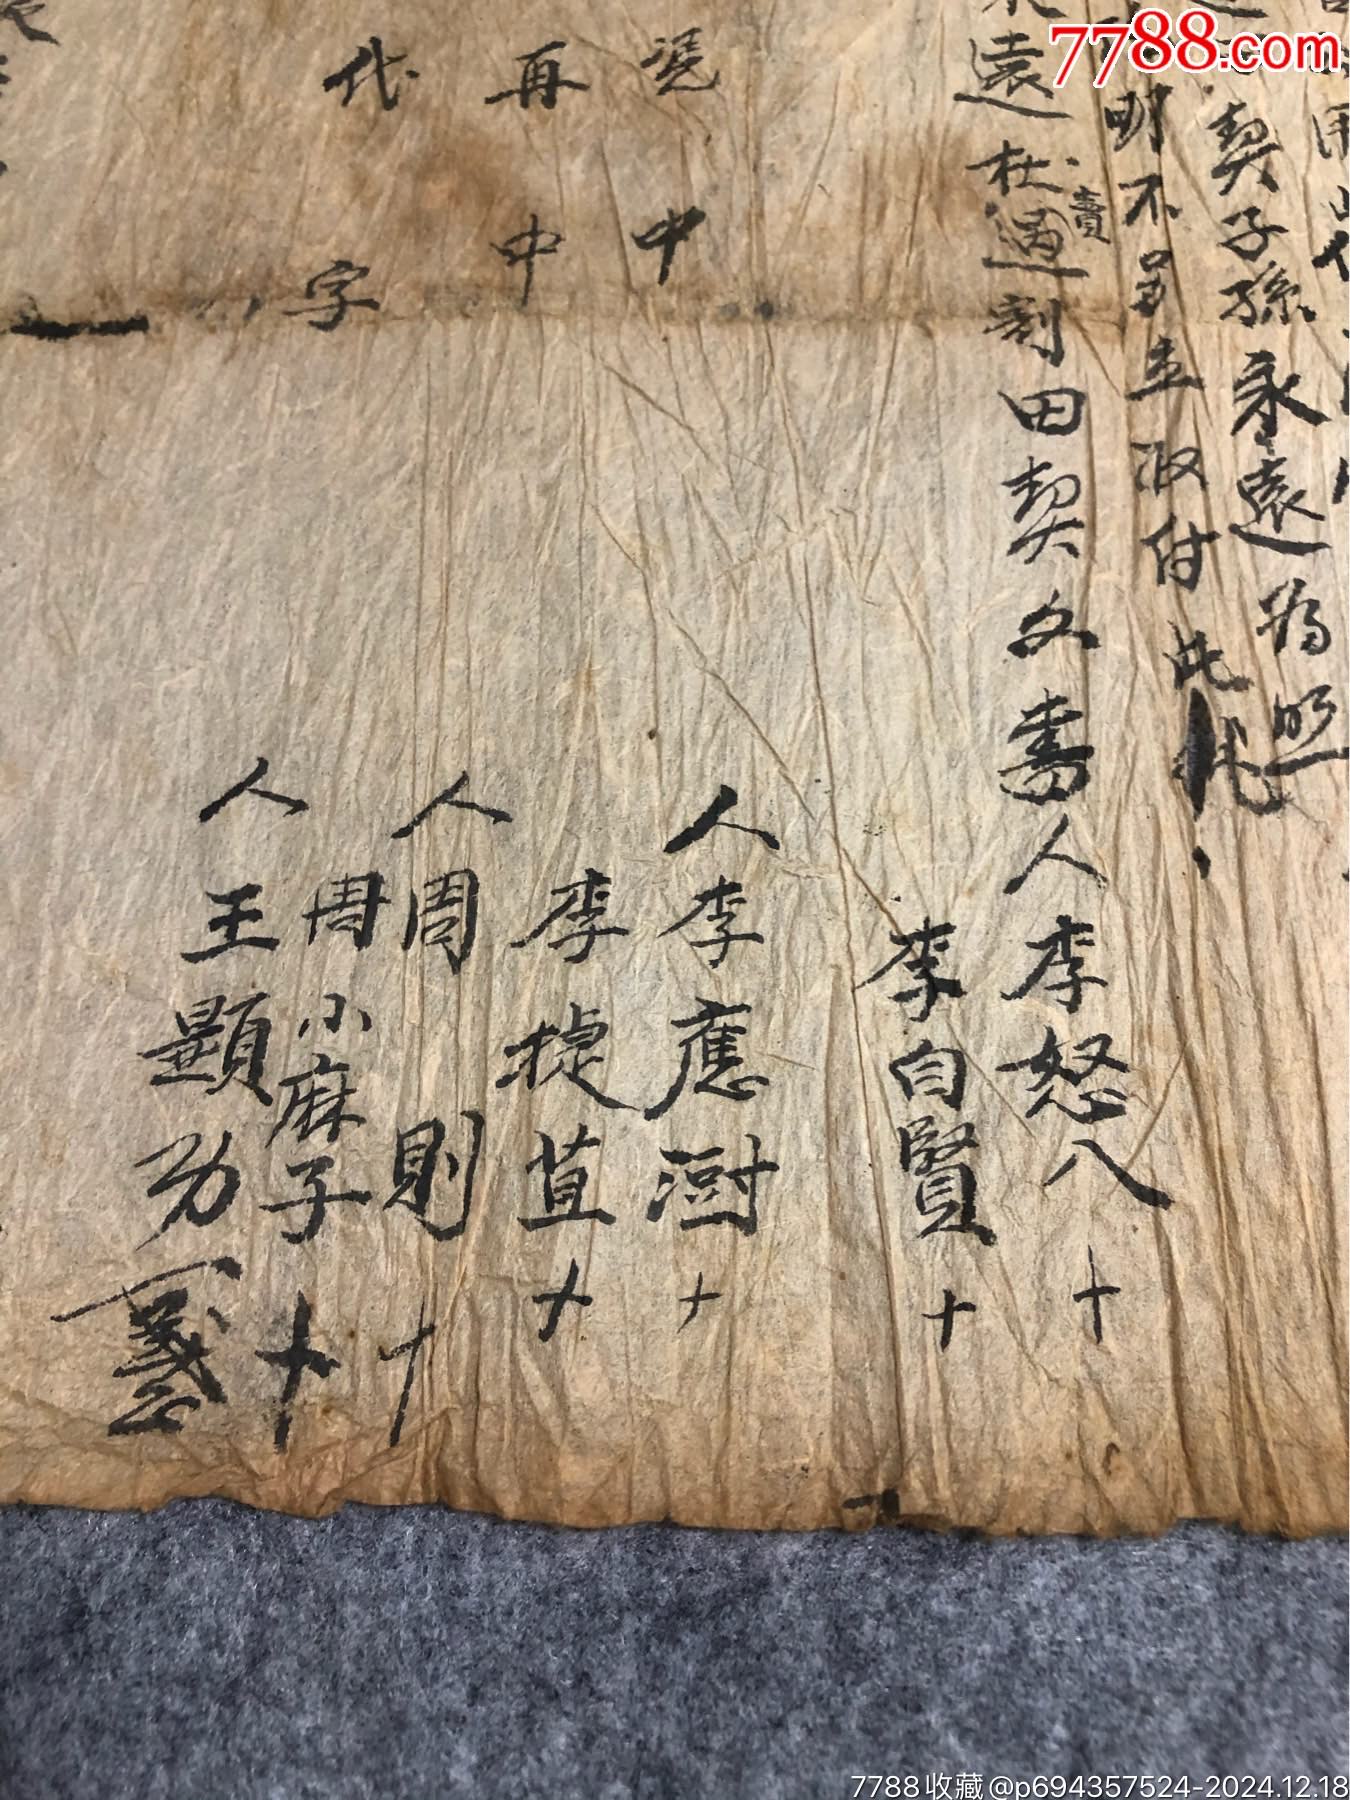 7788.com
契子孫永遠為照
明不另立收付此批
遠杜賣過割田契文書人李怒八十
李自賢十
憑中人李應澍十
李捷苴十
再中人周則十
周小麻子十
代字人王顯功
7788收藏@p694357524-2024.12.18